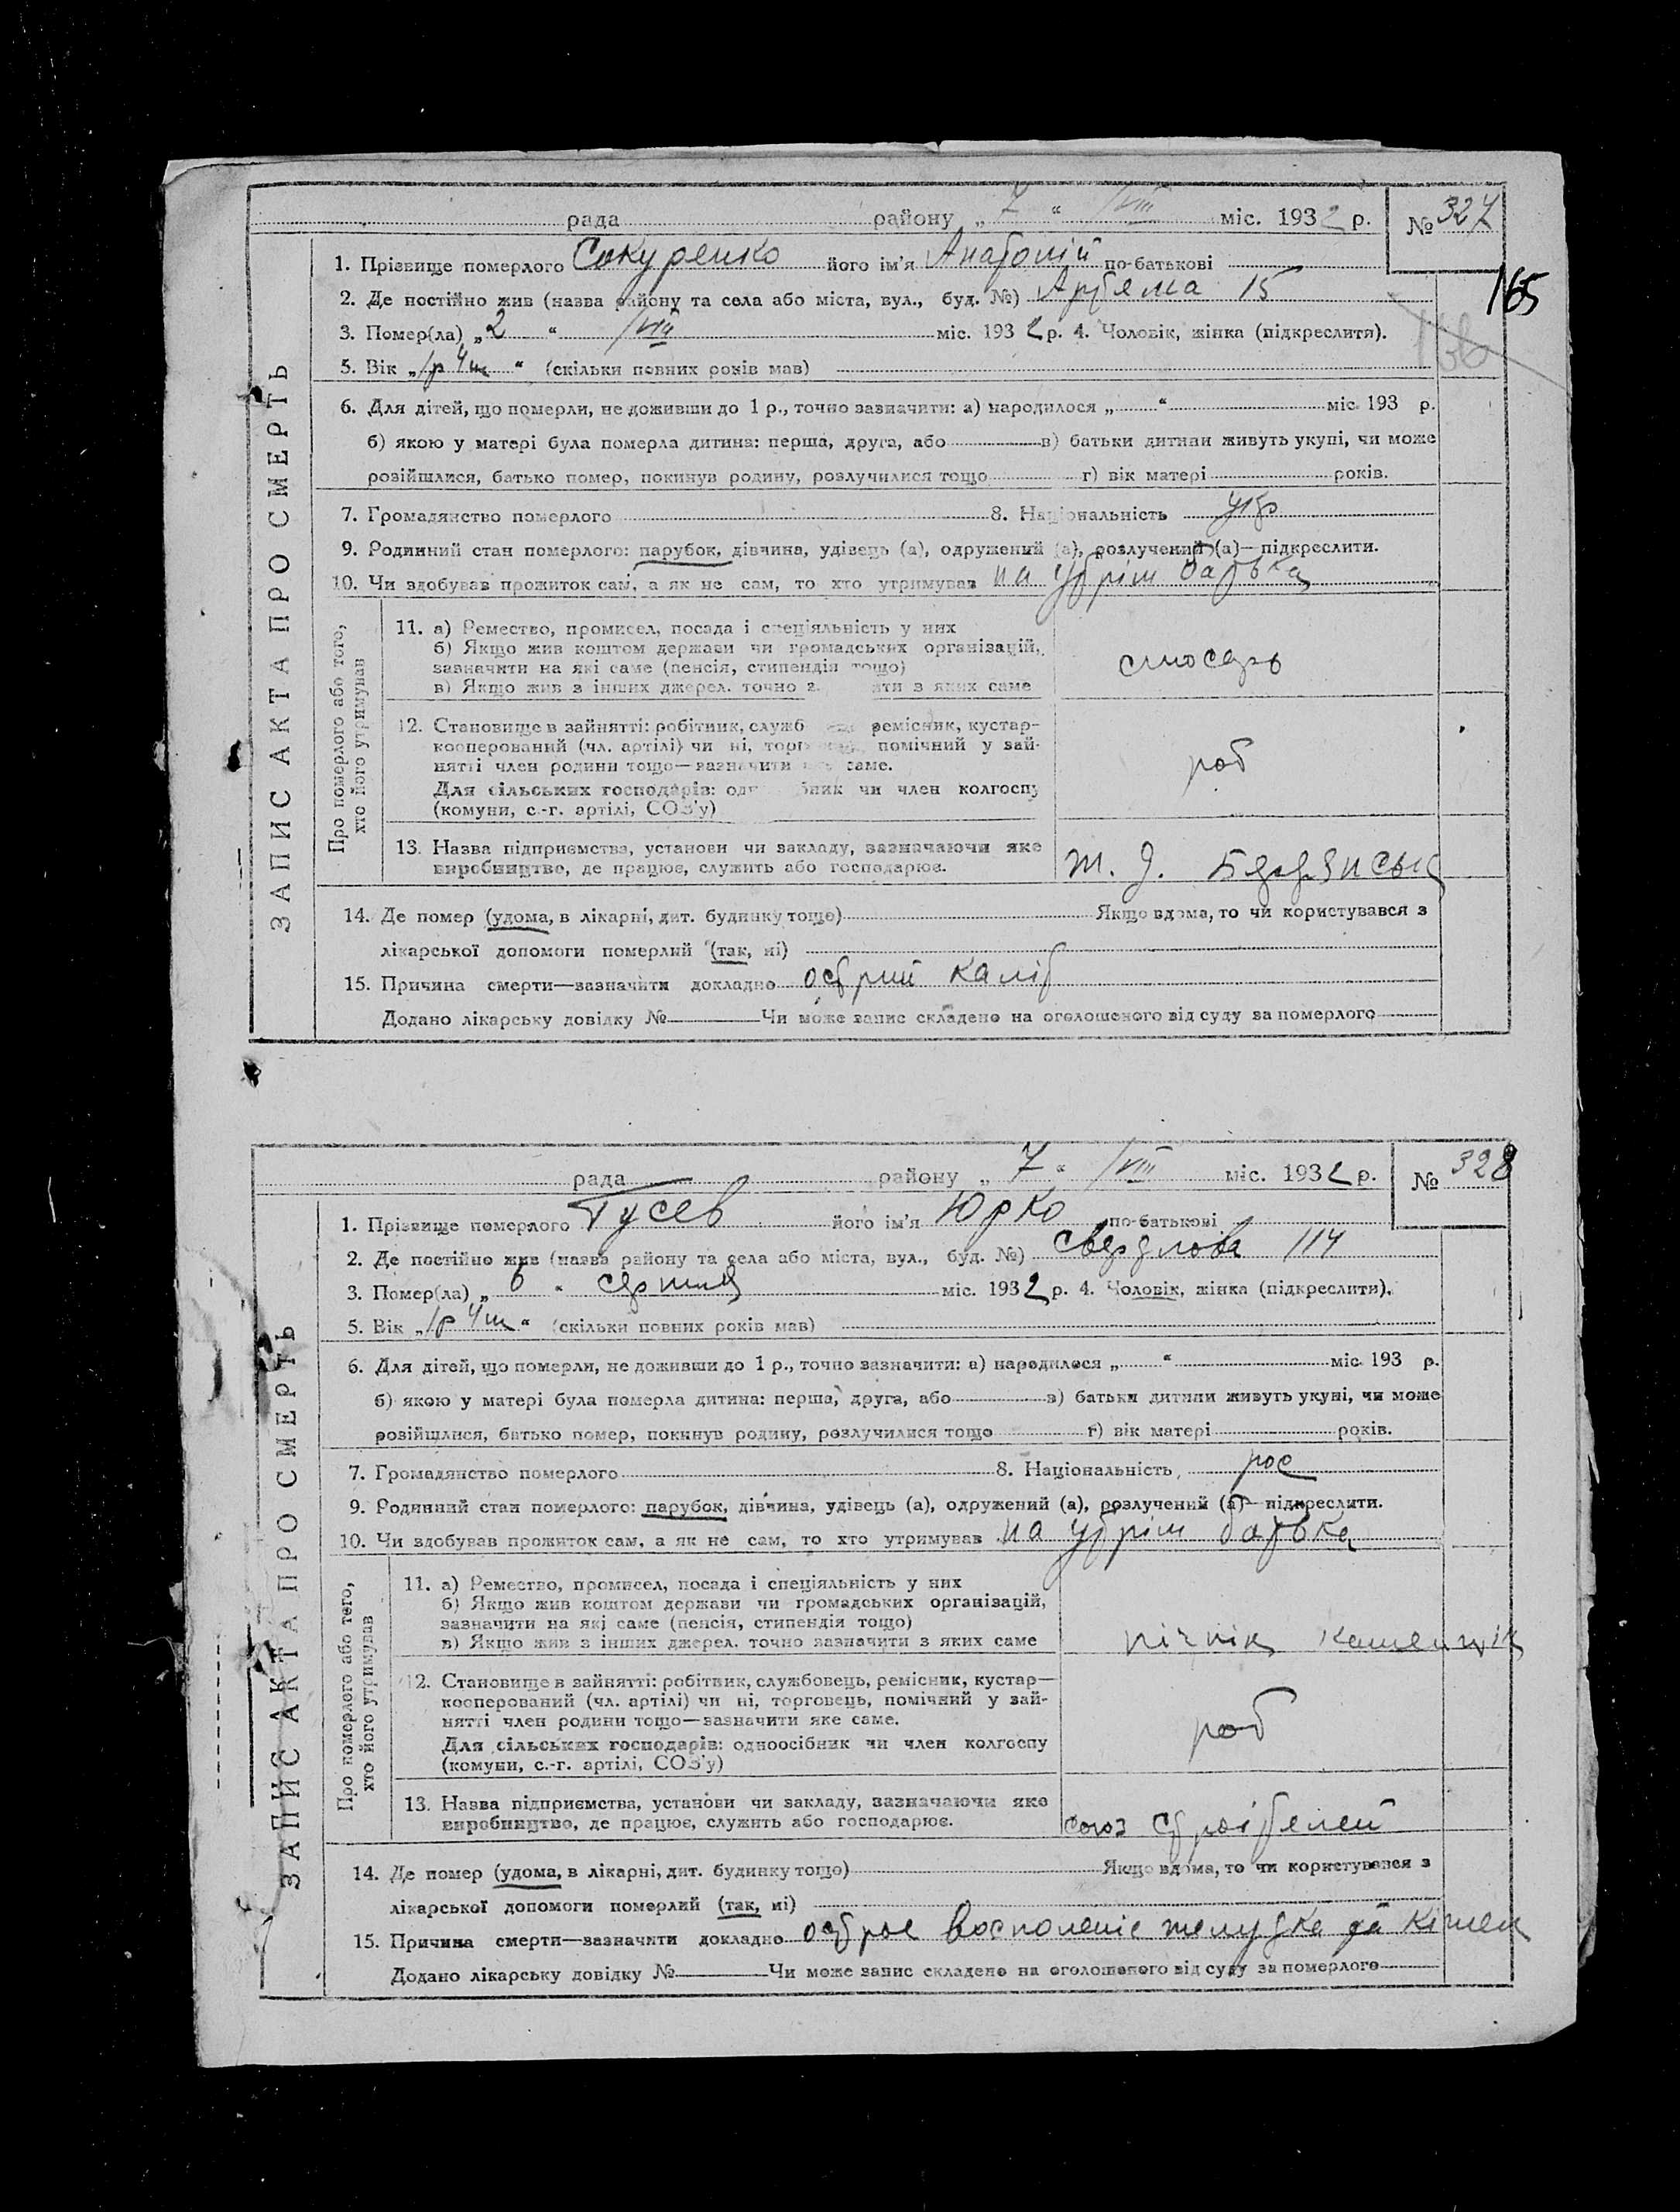 рада району „ 7 “ /VIII міс. 1932 р. № 327
1. Прізвище померлого Сокуренко його ім'я Анатолій по-батькові
165
2. Де постійно жив (назва району та села або міста, вул., буд. №) Артема 15
3. Помер(ла) „ 2 “ /VIII міс. 1932 р. 4. Чоловік, жінка (підкреслити).
5. Вік „ 1р 4м “ (скільки повних років мав)
6. Для дітей, що померли, не доживши до 1 р., точно зазначити: а) народилося „ “ міс. 193 р.
б) якою у матері була померла дитина: перша, друга, або в) батьки дитини живуть укупі, чи може
розійшлися, батько помер, покинув родину, розлучилися тощо г) вік матері років.
7. Громадянство померлого 8. Національність укр
9. Родинний стан померлого: парубок, дівчина, удівець (а), одружений (а), розлучений (а)—підкреслити.
10. Чи здобував прожиток сам, а як не сам, то хто утримував на утрім батька
ЗАПИС АКТА ПРО СМЕРТЬ
Про померлого або того,
хто його утримував
11. а) Ремество, промисел, посада і спеціяльність у них
б) Якщо жив коштом держави чи громадських організацій,
зазначити на які саме (пенсія, стипендія тощо)
в) Якщо жив з інших джерел. точно з ити з яких саме
слюсарь
12. Становище в зайнятті: робітник, служб ремісник, кустар—
кооперований (чл. артілі) чи ні, торг помічний у зай-
нятті член родини тощо—зазначити саме.
Для сільських господарів: од бник чи член колгоспу
(комуни, с.-г. артілі, СОЗ'у)
роб
13. Назва підприємства, установи чи закладу, зазначаючи яке
виробництво, де працює, служить або господарює.
14. Де помер (удома, в лікарні, дит. будинку тощо) Якщо вдома, то чи користувався з
лікарської допомоги померлий (так, ні)
15. Причина смерти—зазначити докладно острий каліт
Додано лікарську довідку № Чи може запис складено на оголошеного від суду за померлого
рада району „ 7 “ /VIII міс. 1932 р. № 328
1. Прізвище померлого Гусев його ім'я Юрко по-батькові
2. Де постійно жив (назва району та села або міста, вул., буд. №) Свердлова 114
3. Помер(ла) „ 6 “ серпня міс. 1932 р. 4. Чоловік, жінка (підкреслити).
5. Вік „ 1р 4м “ (скільки повних років мав)
6. Для дітей, що померли, не доживши до 1 р., точно зазначити: а) народилося „ “ міс. 193 р.
б) якою у матері була померла дитина: перша, друга, або в) батьки дитини живуть укупі, чи може
розійшлися, батько помер, покинув родину, розлучилися тощо г) вік матері років.
7. Громадянство померлого 8. Національність рос
9. Родинний стан померлого: парубок, дівчина, удівець (а), одружений (а), розлучений (а)—підкреслити.
10. Чи здобував прожиток сам, а як не сам, то хто утримував на утрім батька
ЗАПИС АКТА ПРО СМЕРТЬ
Про померлого або того,
хто його утримував
11. а) Ремество, промисел, посада і спеціяльність у них
б) Якщо жив коштом держави чи громадських організацій,
зазначити на які саме (пенсія, стипендія тощо)
в) Якщо жив з інших джерел. точно зазначити з яких саме
12. Становище в зайнятті: робітник, службовець, ремісник, кустар—
кооперований (чл. артілі) чи ні, торговець, помічний у зай-
нятті член родини тощо—зазначити яке саме.
Для сільських господарів: одноосібник чи член колгоспу
(комуни, с.-г. артілі, СОЗ'у)
роб
13. Назва підприємства, установи чи закладу, зазначаючи яке
виробництво, де працює, служить або господарює.
союз строітелей
14. Де помер (удома, в лікарні, дит. будинку тощо) Якщо вдома, то чи користувався з
лікарської допомоги померлий (так, ні)
15. Причина смерти—зазначити докладно острое восполеніе желудка та кішек
Додано лікарську довідку № Чи може запис складено на оголошеного від суду за померлого